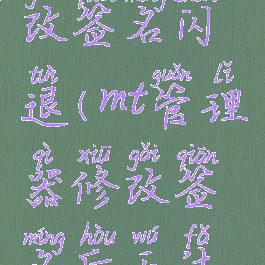 改签名闪
tuì guǎn lǐ
退(mt管理
qì xiū gǎi qiān
器修改签
míng hòu wú fǎ